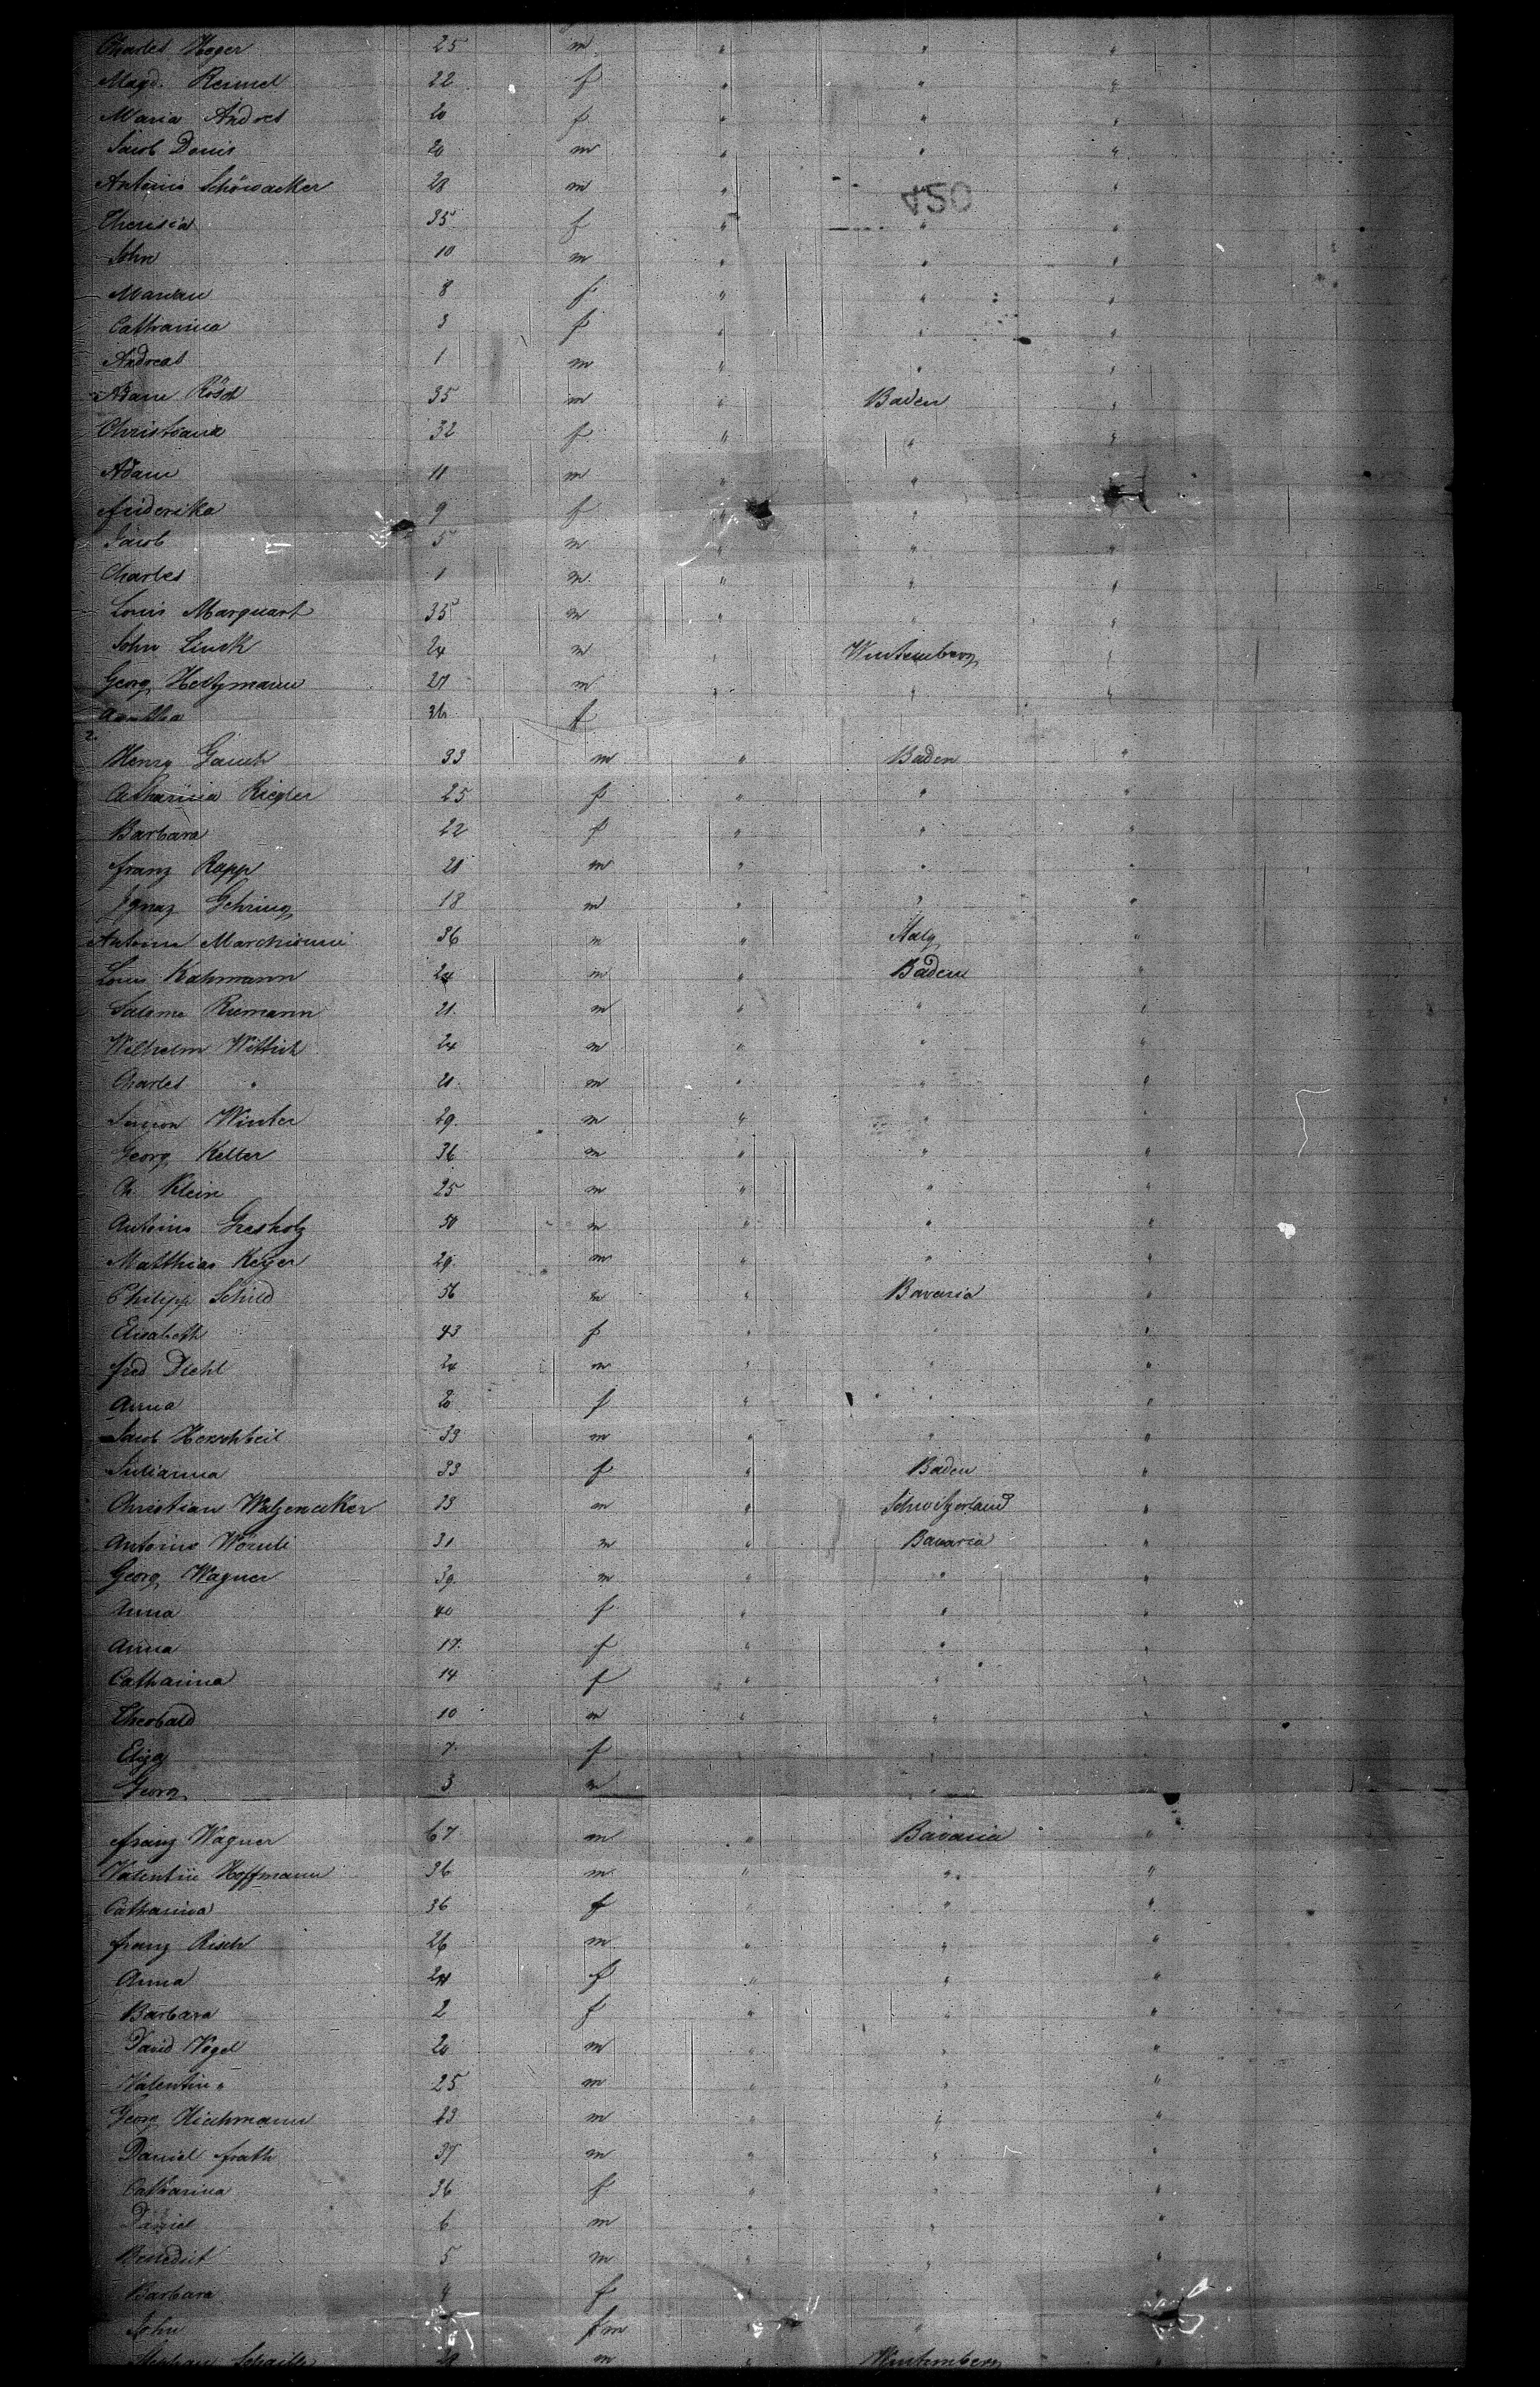 Charles Hoger 25 m " " "
Magd. Reimel 22 f " " "
Maria Andres 20 f " " "
Jacob Denis 20 m " " "
Antoine Schöwacker 28 m " " "
450
Theresia 35 f " " "
John 10 m " " "
8 f " " "
Catharina 3 f " " "
Andreas 1 m " " "
Adam Rösch 35 m " Baden "
Christiana 32 f " " "
Adam 11 m " " "
friderika 9 f " " "
Jacob 5 m " " "
Charles 1 m " " "
Louis Marquart 35 m " " "
John Linck 24 m " Wurtemberg "
Georg m " " "
Agatha f
2.
Henry 33 m " Baden "
Catharina Riegler 25 f " " "
Barbara 22 f " " "
franz Rapp 21 m " " "
Ignaz Gehring 18 m " " "
36 m " Italy "
Louis Kahmann 24 m " Baden "
Salome Riemann 21. m " " "
Wilhelm Wittich 24 m " " "
Charles " 21. m " " "
Simon Winter 29. m " " "
Georg Keller 36 m " " "
Ch. Klein 25 m " " "
Antoine 50 m " " "
Matthias Keyer 29. m " " "
Philipp Schild 56 m " Bavaria "
Elisabeth 43 f " " "
fred Diehl 24 m " " "
Anna 20 f " " "
Jacob 33 m " " "
Julianna 33 f " Baden "
Christian Watzenacker 23 m " Schwitzerland "
Antoine 31 m " Bavaria "
Georg Wagner 39. m " " "
Anna 40 f " " "
Anna 17. f " " "
Catharina 14 f " " "
Theobald 10 m " " "
Eliza 7. f " " "
Georg 3 m " " "
franz Wagner 67 m " Bavaria "
Valentin Hoffmann 36 m " " "
Catharina 36 f " " "
franz Risch 26 m " " "
Anna 24 f " " "
Barbara 2 f " " "
David Vogel 20 m " " "
Valentin " 25 m " " "
Georg 23 m " " "
Daniel frath 37 m " " "
Catharina 36 f " " "
Daniel 6 m " " "
Benedict 5 m " " "
Barbara 4 f " "
John m " "
28 m " Wurtemberg "